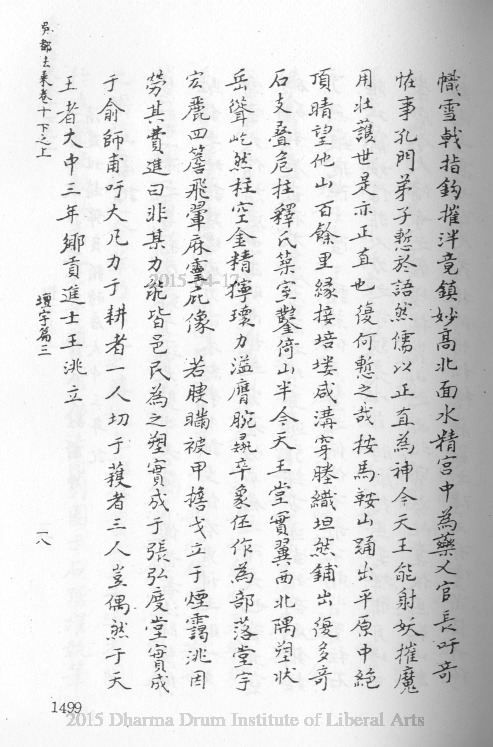 幟雪戟指鈎摧泮竟鎮妙髙北面水精宫中為藥乂官長吁竒
恠事孔門弟子慙於語然儒以正直為神今天王能射妖摧魔
用壯護世是亦正直也復何慙之哉按馬鞍山踊出平原中絕
頂晴望他山百餘里緣接培塿咸溝穿塍織坦然鋪出復多竒
石支叠危拄釋氏築室鑿倚山半今天王堂實翼西北隅塑狀
岳聳屹然柱空金精獰瓌力溢膺腕鬼卒象伍作為部落堂宇
宏麗四簷飛翬麻靈庇像 若睫瞞被甲擔戈立于煙靄洮因
勞其費進曰非某力能皆邑民為之塑實成于張弘度堂實成
于俞師甫吁大凡力于耕者一人切于穫者三人豈偶然于天
王者大中三年鄉貢進士王洮立
吳都法乘卷十下之上
壇宇篇三
一八
1499
2015-04-17
2015 Dharma Drum Institute of Liberal Arts